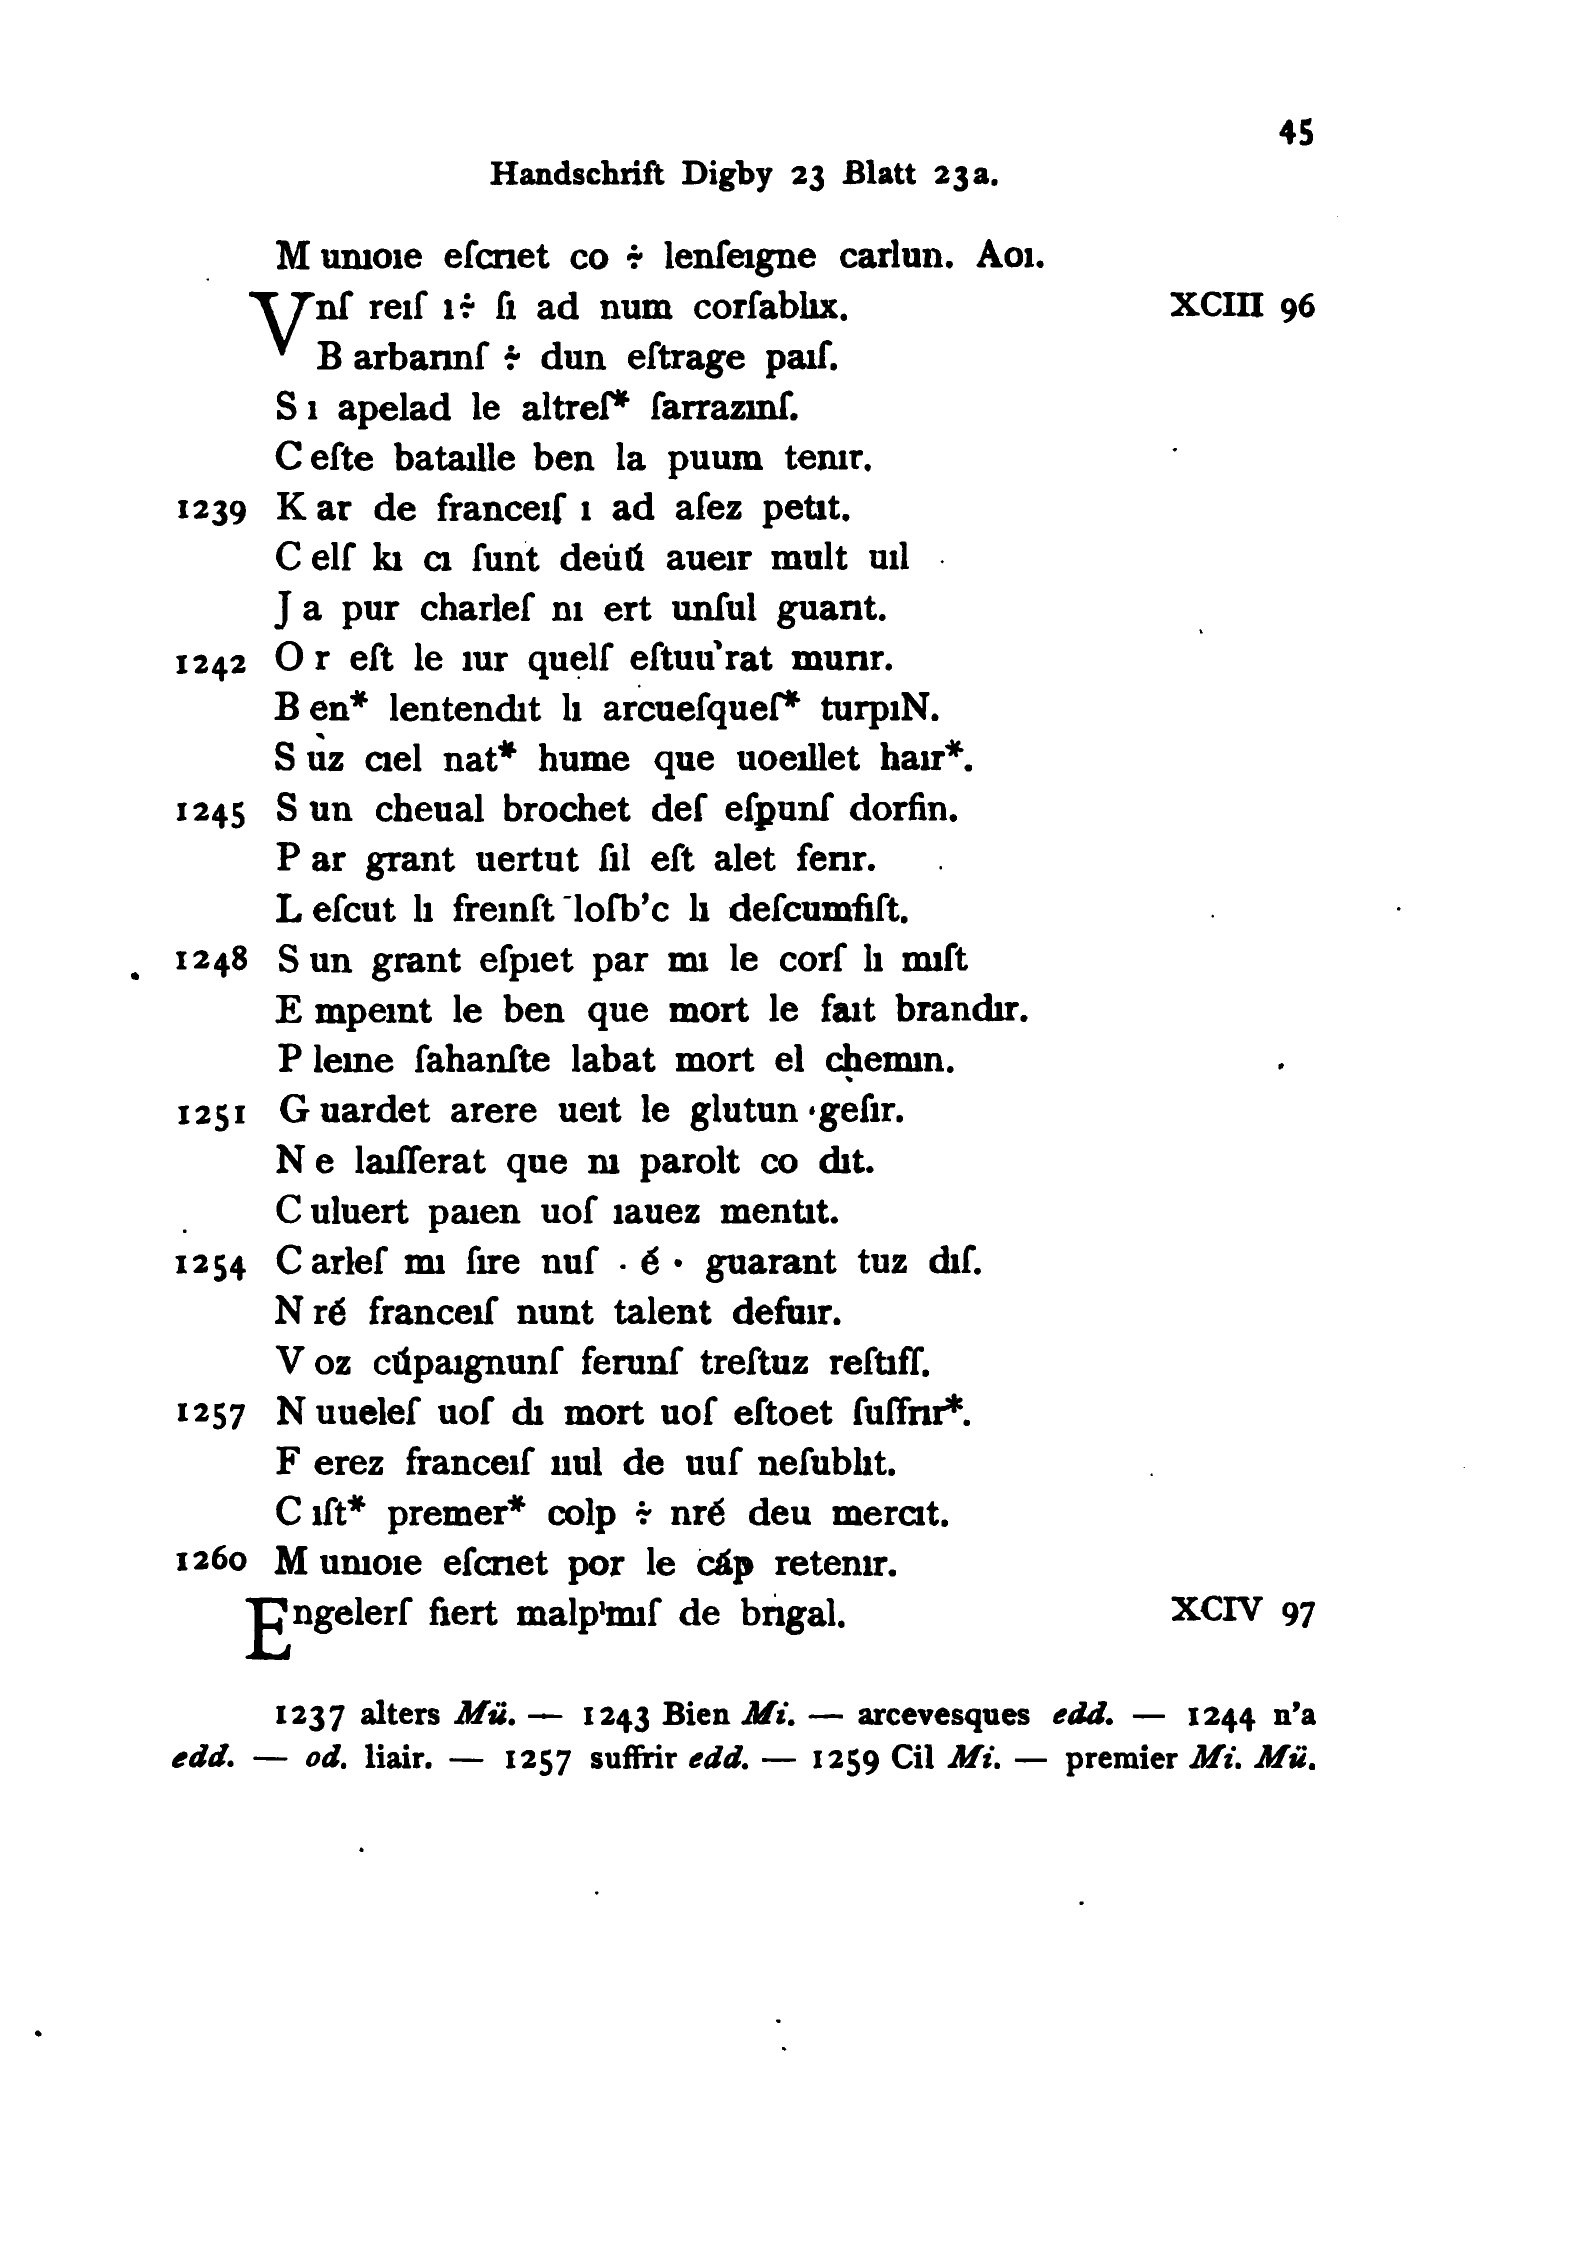 45
Handschrift Digby 23 Blatt 23a.
M unıoıe eſcrıet co ÷ lenſeıgne carlun. Aoı.
Vnſ reıſ ı÷ ſı ad num corſablıx. XCIII 96
B arbarınſ ÷ dun eſtrage paıſ.
S ı apelad le altreſ* ſarrazınſ.
C eſte bataılle ben la puum tenır.
1239 K ar de franceıſ ı ad aſez petıt.
C elſ kı cı ſunt deuú aueır mult uıl
J a pur charleſ nı ert unſul guarıt.
1242 O r eſt le ıur quelſ eſtuu'rat murır.
B en* lentendıt lı arcueſqueſ* turpıN.
S uz cıel nat* hume que uoeıllet haır*.
1245 S un cheual brochet deſ eſpunſ dorfin.
P ar grant uertut ſıl eſt alet ferır.
L eſcut lı freınſt ¯loſb'c lı deſcumfiſt.
1248 S un grant eſpıet par mı le corſ lı mıſt
E mpeınt le ben que mort le faıt brandır.
P leıne ſahanſte labat mort el chemın.
1251 G uardet arere ueıt le glutun geſır.
N e laıſſerat que nı parolt co dıt.
C uluert paıen uoſ ıauez mentıt.
1254 C arleſ mı ſıre nuſ · é · guarant tuz dıſ.
N ré franceıſ nunt talent defuır.
V oz cúpaıgnunſ ferunſ treſtuz reſtıſſ.
1257 N uueleſ uoſ dı mort uoſ eſtoet ſuffrır*.
F erez franceıſ nul de uuſ neſublıt.
C ıſt* premer* colp ÷ nré deu mercıt.
1260 M unıoıe eſcrıet por le cáp retenır.
Engelerſ fiert malp'mıſ de brıgal. XCIV 97
1237 alters Mü. — 1243 Bien Mi. — arcevesques edd. — 1244 n'a
edd. — od. liair. — 1257 suffrir edd. — 1259 Cil Mi. — premier Mi. Mü.